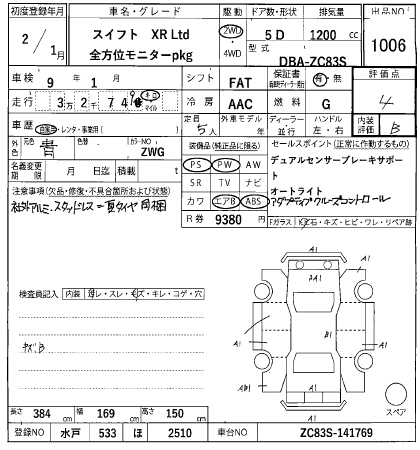 初度登録年月 車名・グレード 駆動 ドア数・形状 排気量 出品NO
2/1月 スイフト XR Ltd 2WD 5 D 1200 cc 1006
全方位モニターpkg ・4WD 型式 DBA-ZC83S
車検 9年 1月 シフト FAT 保証書 有・無 評価点
走行 3万2千74 キロ マイル 冷房 AAC 燃料 G 4
車歴 自家用・レンタ・事業用( ) 定員 5人 外車モデル 年 ディーラー・並行 ハンドル 左・右 内装評価 B
外色 元色 青 色替 カラーNO ZWG 装備品(純正品に限る) セールスポイント(正常に作動するもの)
名義変更期限 月 日迄 積載 t PS PW AW デュアルセンサーブレーキサポート
注意事項(欠品・修復・不具合箇所および状態) SR TV ナビ オートライト
社外アルミ.スタッドレス=夏タイヤ同梱 カワ エアB ABS アダプティブクルーズコントロール
R券 9380 円 Fガラス 石・キズ・ヒビ・ワレ・リペア跡
検査員記入 内装 ヨレ・スレ・キズ・キレ・コゲ・穴
キズB
A1
A1
A1
B1
A1
AB1
A1
A1
スペア
長さ 384 cm 幅 169 cm 高さ 150 cm
登録NO 水戸 533 ほ 2510 車台NO ZC83S-141769